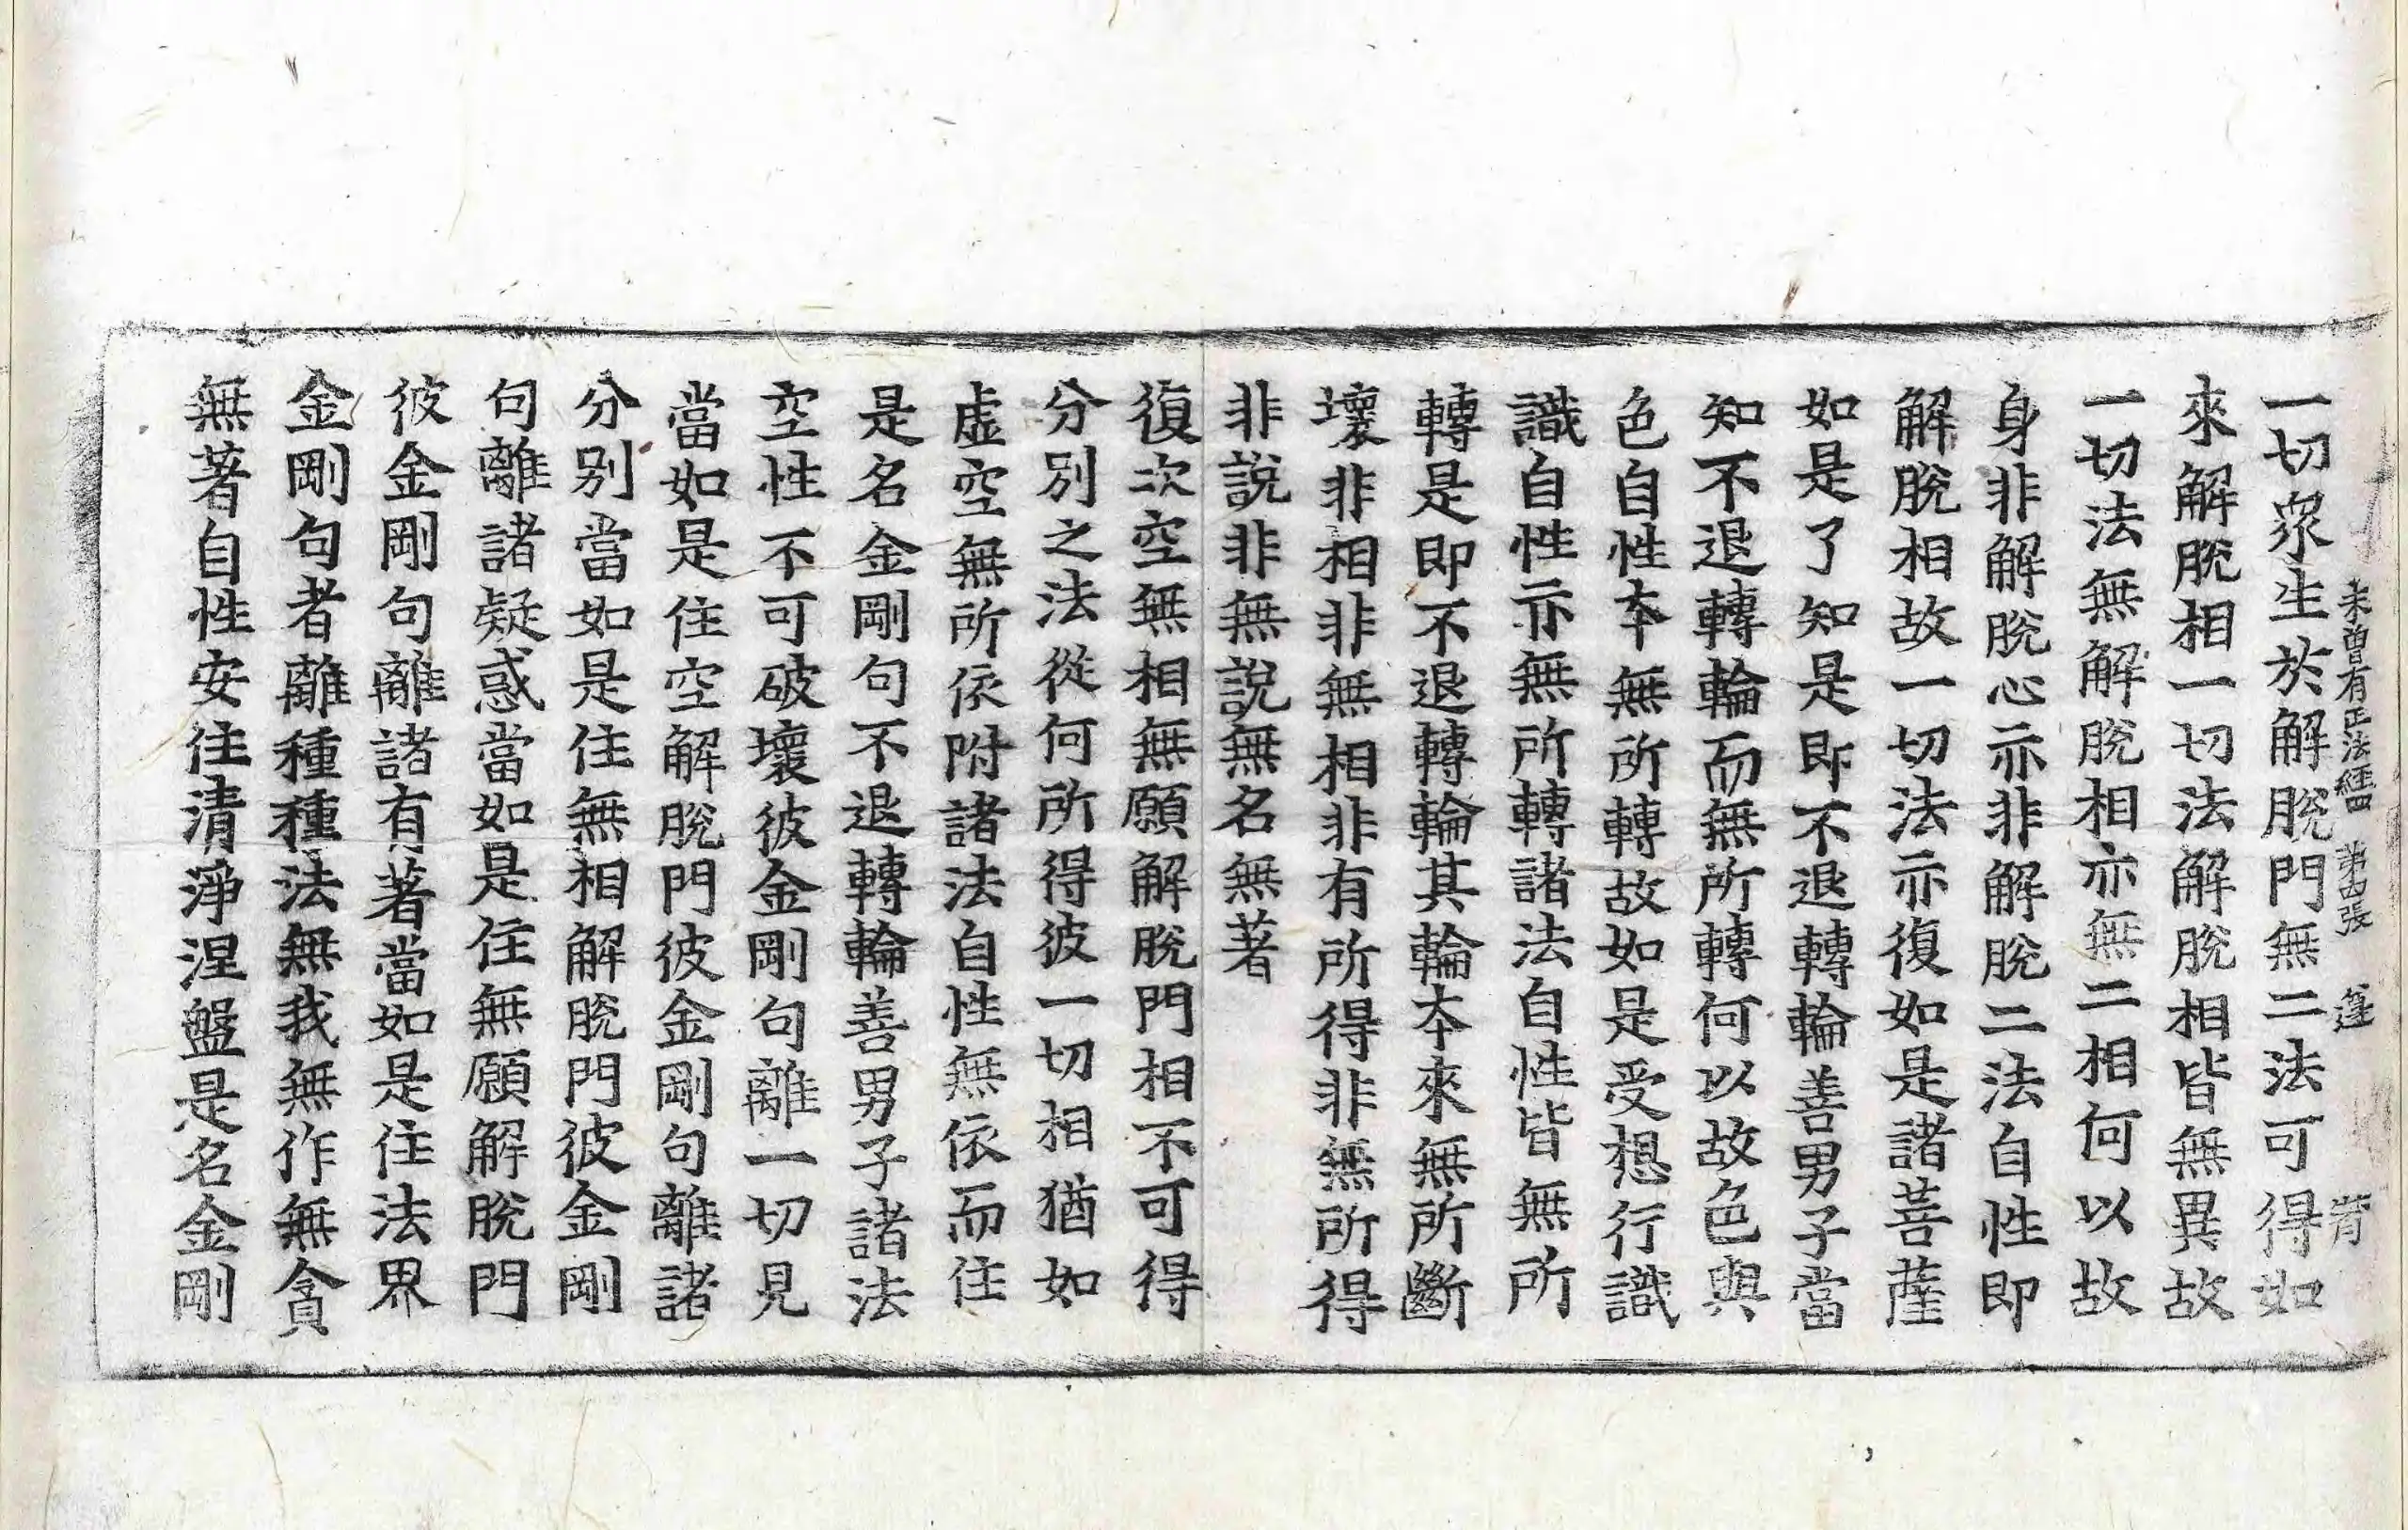 未曾有正法經四 第四張 篷 背
一切眾生於解脫門無二法可得如
來解脫相一切法解脫相皆無異故
一切法無解脫相亦無二相何以故
身非解脫心亦非解脫二法自性即
解脫相故一切法亦復如是諸菩薩
如是了知是即不退轉輪善男子當
知不退轉輪而無所轉何以故色與
色自性本無所轉故如是受想行識
識自性亦無所轉諸法自性皆無所
轉是即不退轉輪其輪本來無所斷
壞非相非無相非有所得非無所得
非說非無說無名無著
復次空無相無願解脫門相不可得
分別之法從何所得彼一切相猶如
虛空無所依附諸法自性無依而住
是名金剛句不退轉輪善男子諸法
空性不可破壞彼金剛句離一切見
當如是住空解脫門彼金剛句離諸
分別當如是住無相解脫門彼金剛
句離諸疑惑當如是住無願解脫門
彼金剛句離諸有著當如是住法界
金剛句者離種種法無我無作無貪
無著自性安住清淨涅盤是名金剛